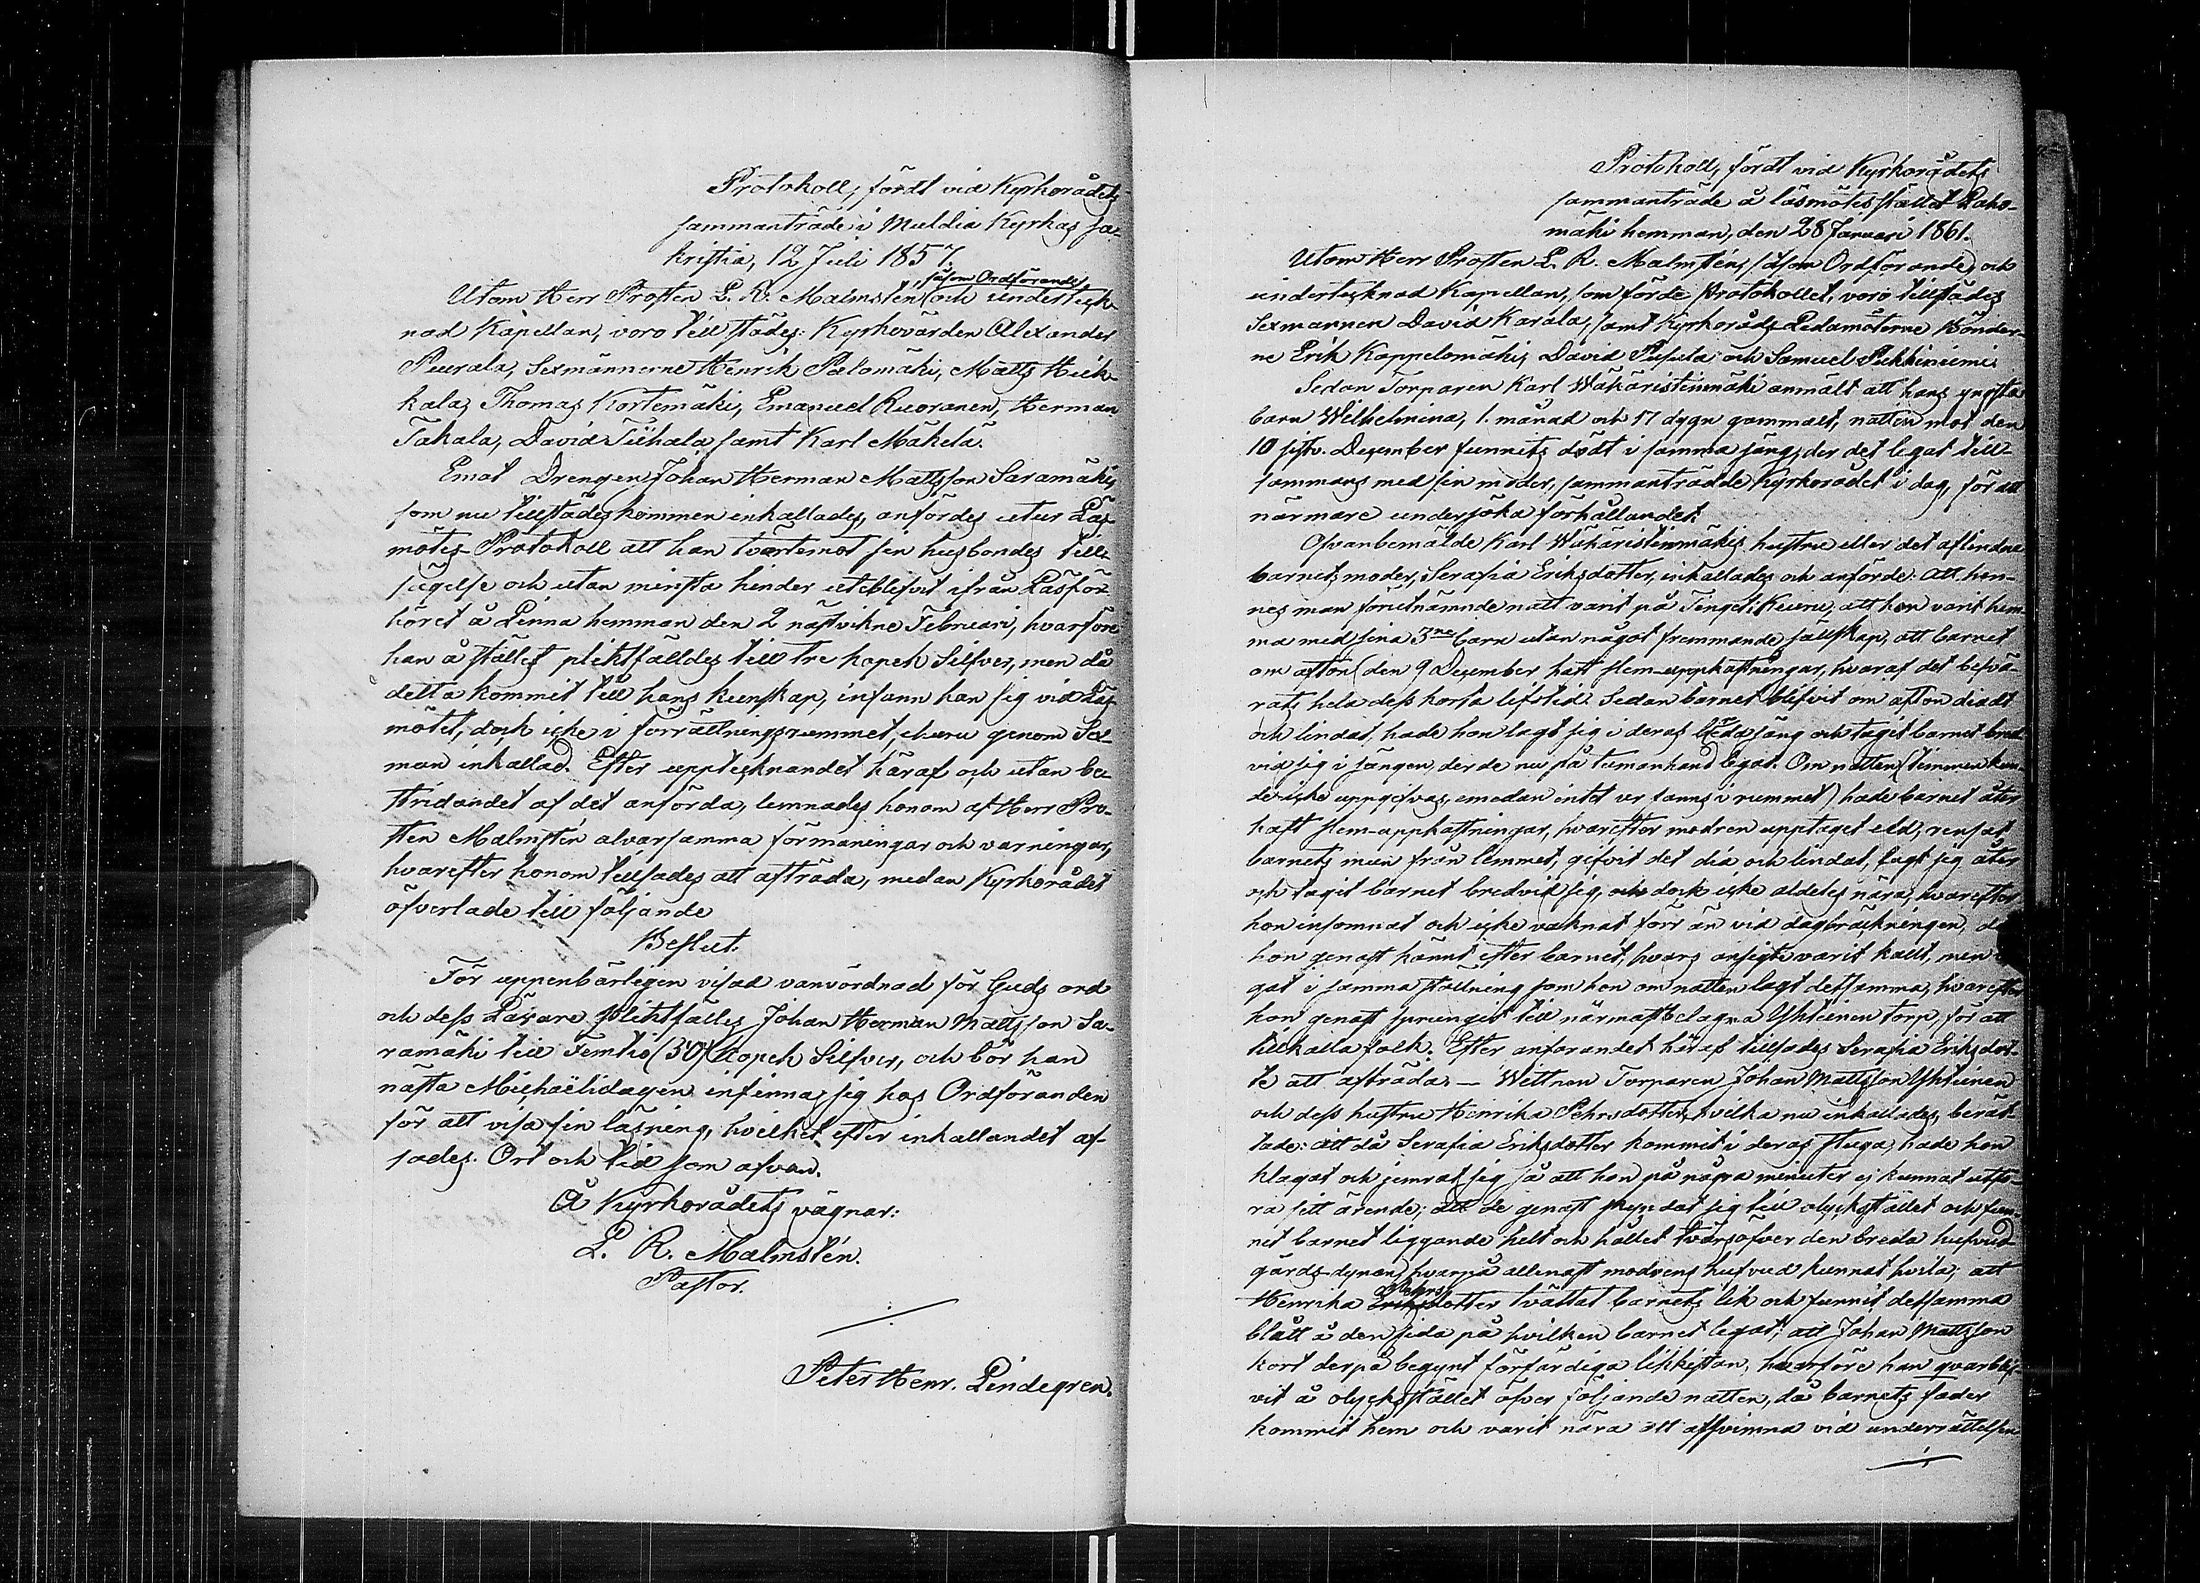 Protokoll, fördt vid Kyrkorådets
sammanträde i Muldia Kyrkas sa-
kristia, 12 Juli 1857.
såsom Ordförande,
Utom Herr Prosten L. R. Malmstén och underteck-
nad Kapellan, voro tillstädes: Kyrkovärden Alexander
Puurala, Sexmännerne Henrik Palomäki, Matts Hick-
kala, Thomas Kortemäki, Emanuel Ruoranen, Herman
Takala, David Tiihala samt Karl Mäkelä.
Emot Drengen Johan Herman Mattsson Saramäki,
som nu tillstädeskommen inkallades, anfördes utur Läs-
mötes-Protokoll att han tvärtemot sin husbondes till-
sägelse och utan minsta hinder uteblifvit ifrån Läsför-
höret å Linna hemman den 2 nästvikne Februari, hvarföre
han å stället plikfälldes till tre kopek Silfver, men då
detta kommit till hans kunskap, infann han sig vid Läs-
mötet, dock icke i förrättningsrummet, ehuru genom Sex-
man inkallad. Efter upptecknandet häraf och utan be-
stridandet af det anförda, lemnades honom af Herr Pro-
sten Malmstén alvarsamma förmaningar och varningar,
hvarefter honom tillsades att afträda, medan Kyrkorådet
öfverlade till följande
Beslut:
För uppenbarligen visad vanvördnad för Guds ord
och dess Lärare plikfälles Johan Herman Mattsson Sa-
ramäki till femtio (50) kopek Silfver, och bör han
nästa Michaëlidagen infinna sig hos Ordföranden
för att visa sin läsning, hvilket efter inkallandet af-
sades. Ort och tid som ofvan.
Å Kyrkorådets vägnar:
L. R. Malmstén.
Pastor.
Peter Henr. Lindegren.
Protokoll, fördt vid Kyrkorådets
sammanträde å läsmötesstället Paho-
mäki hemman, den 28 Januari 1861.
Utom Herr Prosten L. R. Malmstén, såsom Ordförande, och
undertecknad Kapellan, som förde Protokollet, voro tillstädes
Sexmannen David Karala, samt Kyrkoråds Ledamöterne Bönder-
ne Erik Kappelomäki, David Pusula och Samuel Pukkiniemi.
Sedan Torparen Karl Wähäristinmäki anmält att hans yngsta
barn Wilhelmina, 1. månad och 17 dygn gammalt, natten mot den
10 sistv. December funnits dödt i samma säng, der det legat till-
sammans med sin moder, sammanträdde Kyrkorådet i dag, för att
närmare undersöka förhållandet.
Ofvanbemälde Karl Wähäristinmäkis hustru eller det aflidna
barnets moder, Serafia Eriksdotter, inkallades och anförde: att hen-
nes man förutnämnde natt varit på Tinget i Keuru, att hon varit hem-
ma med sina 3ne barn utan något fremmande sällskap, att barnet
om afton (den 9 December haft slem-uppkastningar, hvaraf det besvä-
rats hela dess korta lifstid. Sedan barnet blifvit om afton diadt
och lindat, hade hon lagt sig i deras breda säng och tagit barnet bred-
vid sig i sängen, der de nu på tumanhand legat. Om natten (timmen kun-
de icke uppgifvas, emedan intet ur fanns i rummet) hade barnet åter
haft slem-uppkastningar, hvarefter modren upptaget eld, rensat
barnets mun från slemmet, gifvit det dia och lindat, lagt sig åter
och tagit barnet bredvid sig, och dock icke aldeles nära, hvarefter
hon insomnat och icke vaknat förr än vid dagbräckningen, då
hon genast kännt efter barnet, hvars ansigte varit kallt, men
gat i samma ställning som hon om natten lagt detsamma, hvarefter
hon genast sprungit till närmast belägna Yhtiinen torp, för att
tillkalla folk. Efter anförandet häraf tillsades Serafia Eriksdot-
te att afträda. — Wettnen Torparen Johan Mattsson Yhtiinen
och dess hustru Henrika Pehrsdotter, hvilka nu inkallades, berät-
tade: att då Serafia Eriksdotter kommit i deras stuga, hade hon
klagat och jemrat sig så att hon på några minuter ej kunnat utfö-
ra sitt ärende; att de genast skyndat sig till olycksstället och fun-
nit barnet liggande helt och hållet tvärsöfver den breda hufvud-
gärds-dynan, hvarpå allenast modrens hufvud kunnat hvila; att
Pehrs
Henrika Eriksdotter tvättat barnets lik och funnit detsamma
blått å den sida på hvilken barnet legat; att Johan Mattsson
kort derpå begynt förfärdiga likkistan, hvarföre han qvarblif-
vit å olycksstället öfver följande natten, då barnets fader
kommit hem och varit nära att afsvimna vid underrättelsen